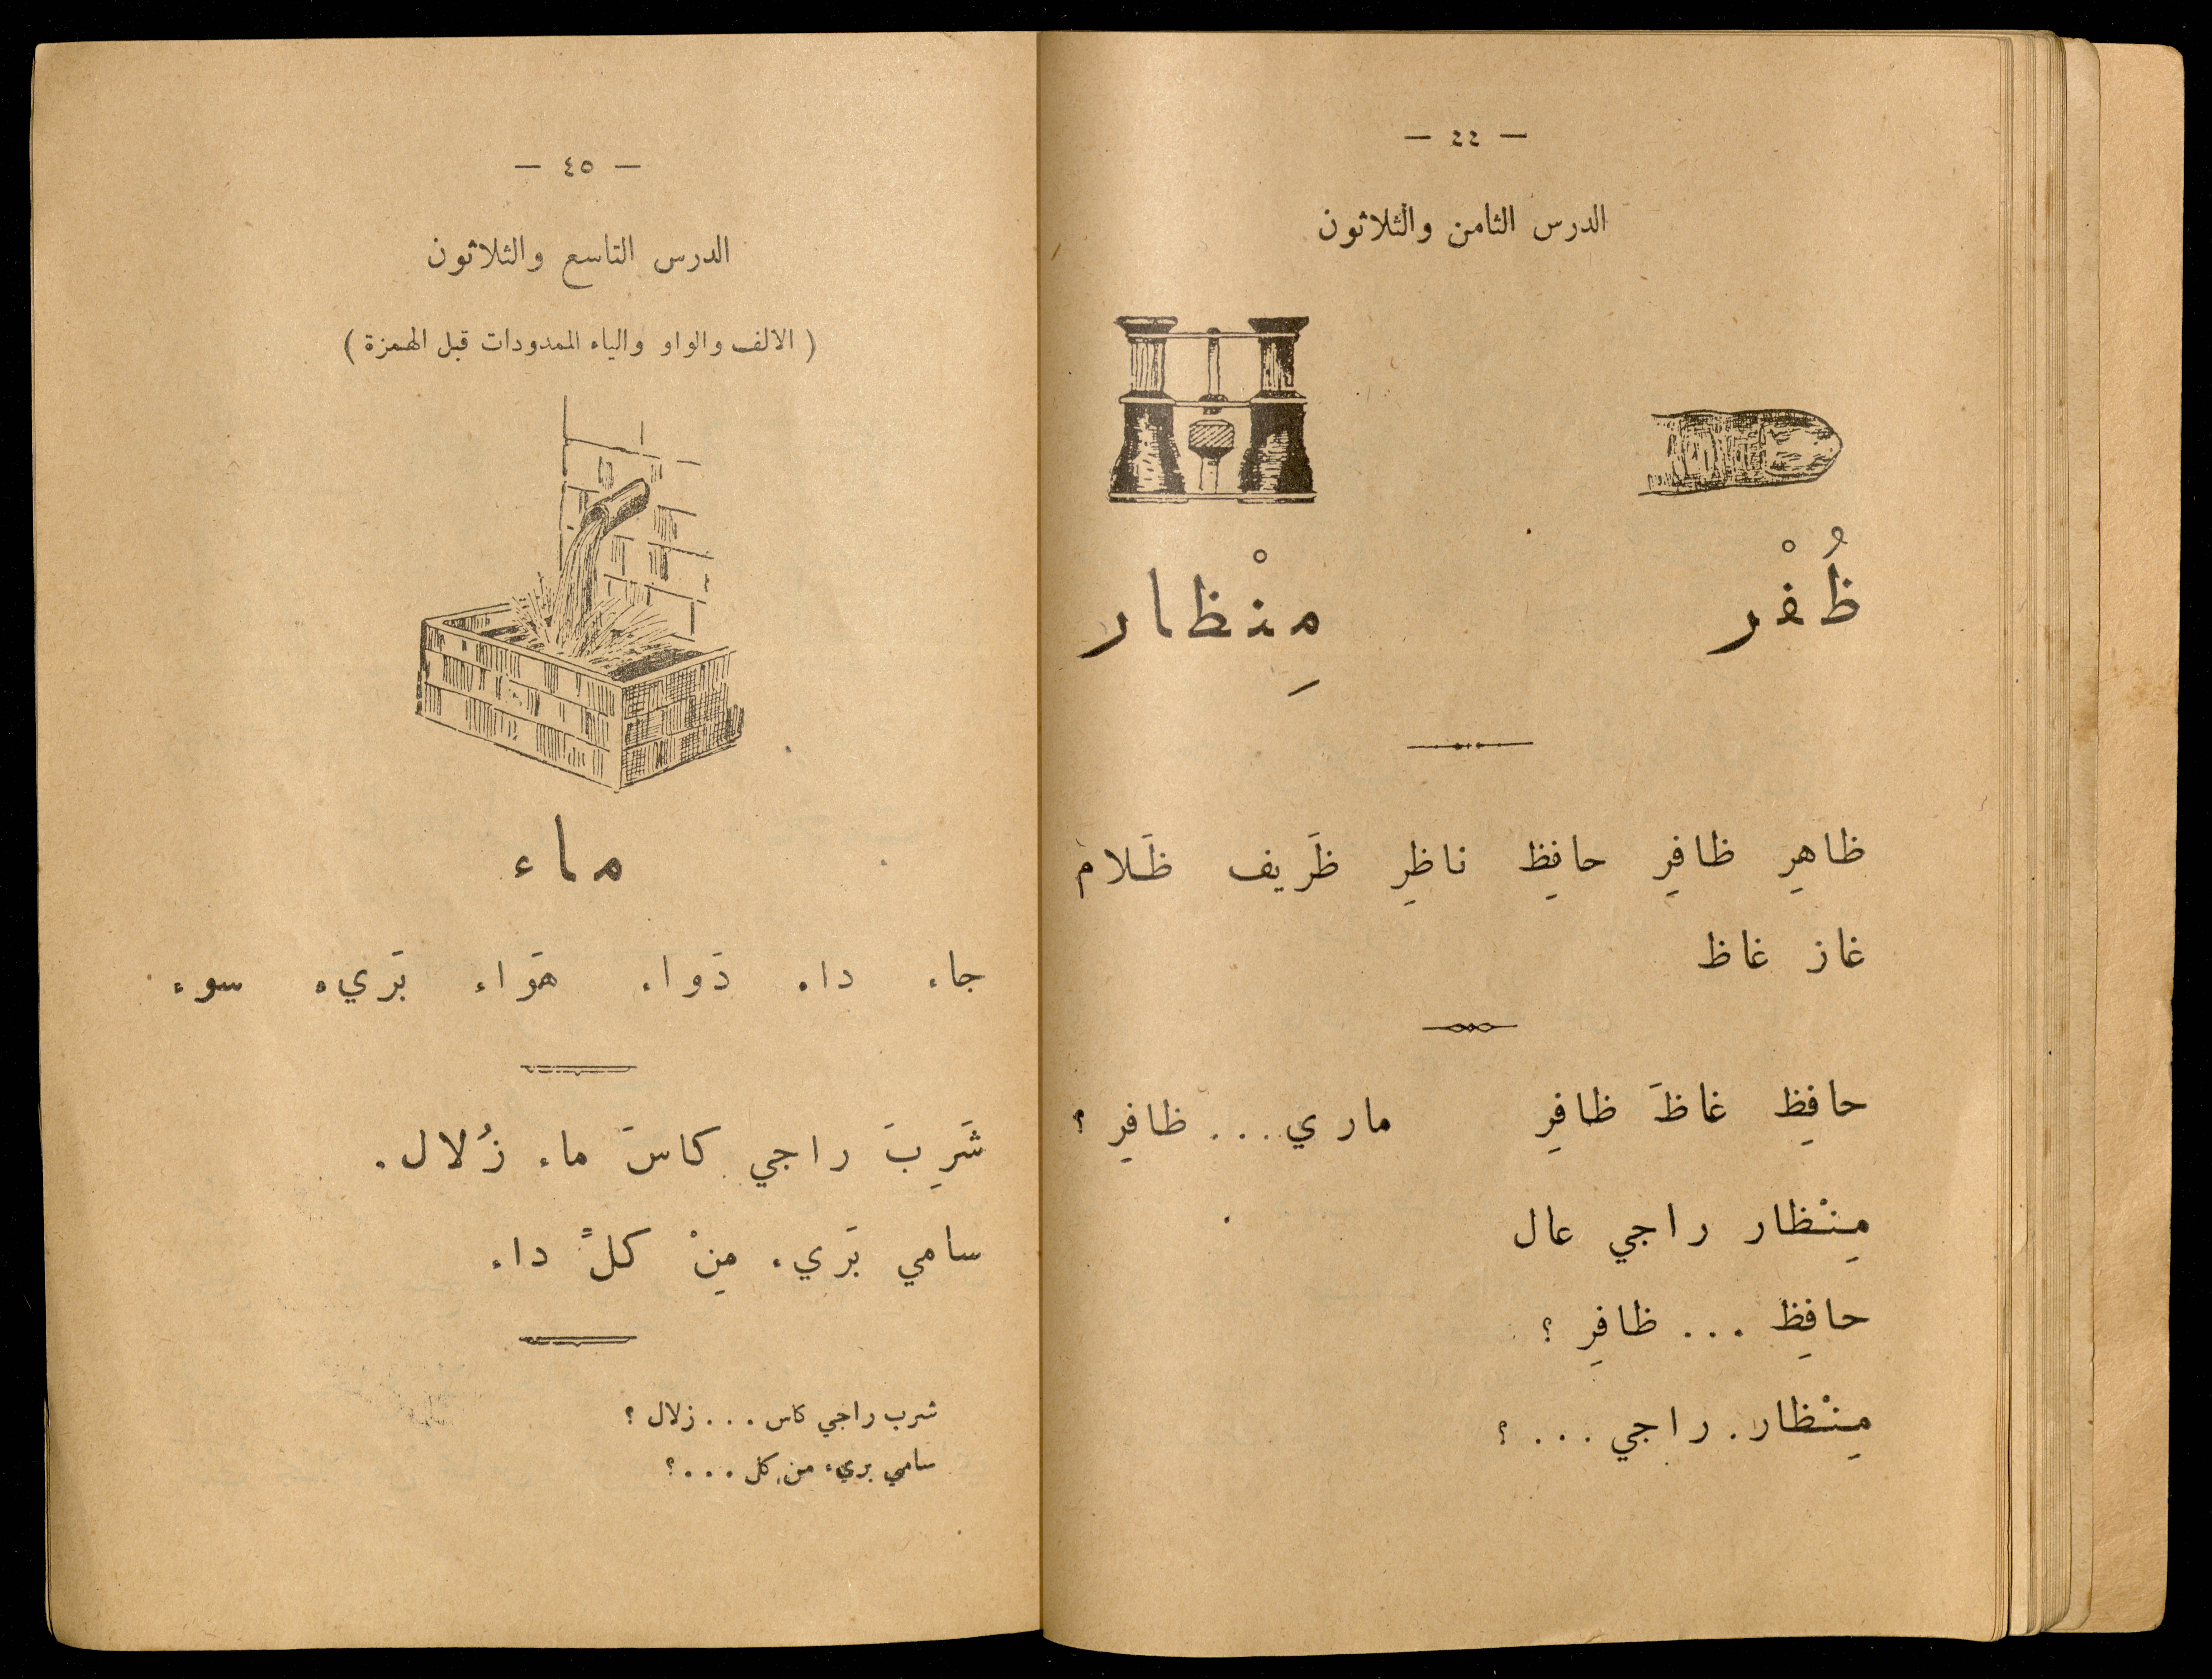 — ٤٤ —
الدرس الثامن والثلاثون
ظُفْر
مِنْظار
ظاهِر ظافِر حافِظ ناظِر ظَريف ظَلام
غاز غاظ
حافِظ غاظَ ظافِر ماري . . . ظافِر ؟
مِنْظار راجي عال
حافِظ . . . ظافِر ؟
مِنْظار . راجي . . . ؟
— ٤٥ —
الدرس التاسع والثلاثون
( الالف والواو والياء الممدودات قبل الهمزة )
ماء
جاء داء دَواء هَواء بَريء سوء
شَرِبَ راجي كاسَ ماء زُلال .
سامي بَريء مِنْ كلّ داء
شرب راجي كاس . . . زلال ؟
سامي بريء من كل . . . ؟